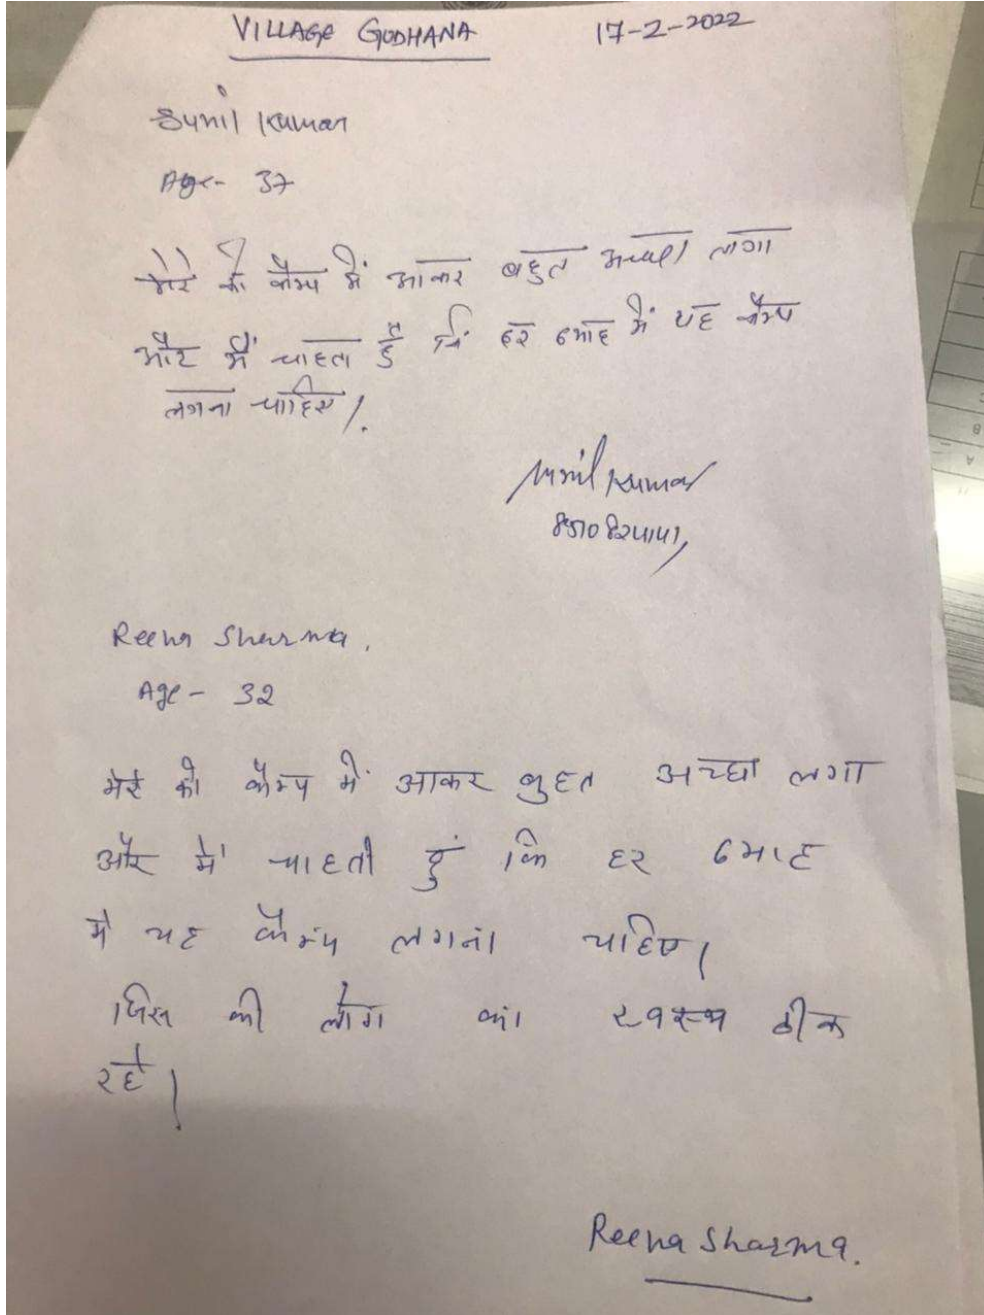 VILLAGE GODHANA 17-2-2022
Sunil Kumar
Age- 37
मेरे को कैम्प में आकर बहुत अच्छा लगा
और मैं चाहता हूँ कि हर 6 माह में यह कैम्प
लगना चाहिए।
Sunil Kumar
Reena Sharma.
Age - 32
मेरे को कैम्प में आकर बुहत अच्छा लगा
और में चाहती हुं कि हर 6 माह
मे यह कैम्प लगना चाहिए।
जिस की लोग का स्वस्थ ठीक
रहे।
Reena Sharma.